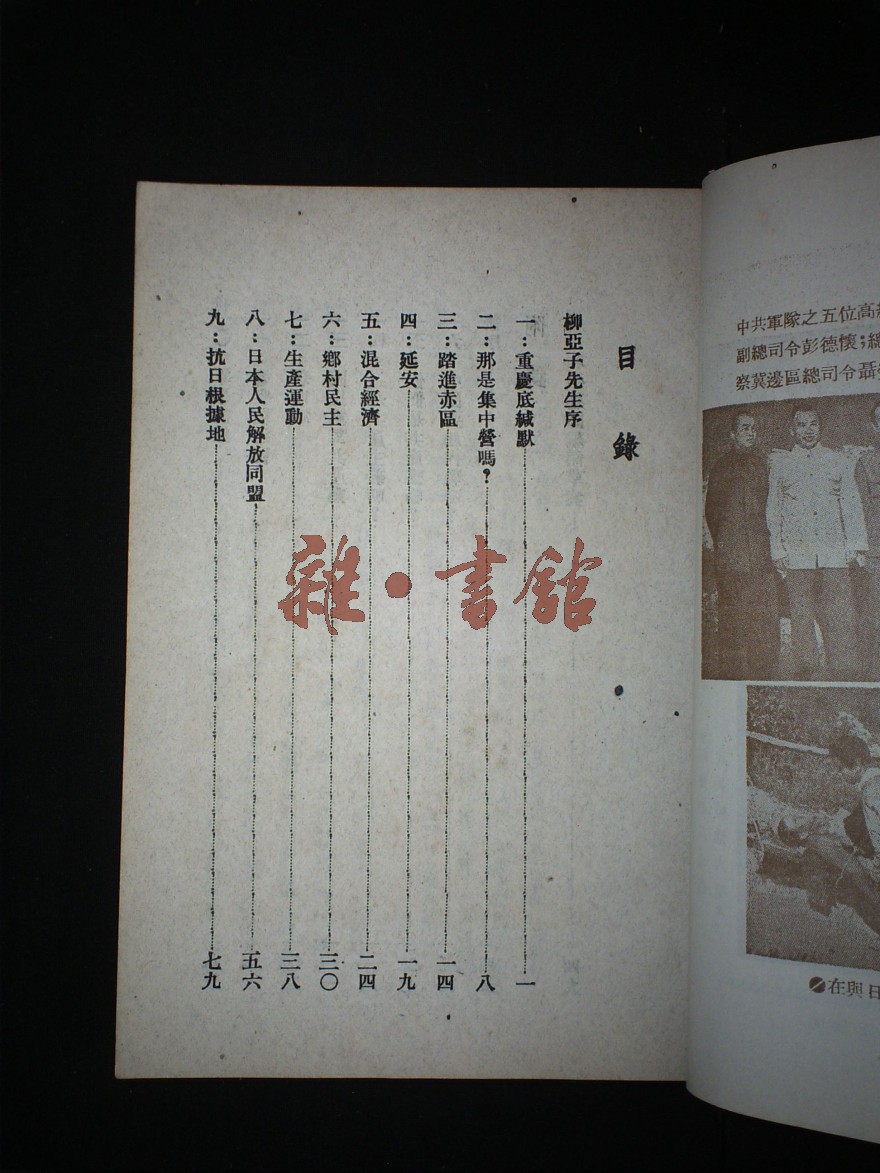 中共軍隊之五位高
副總司令彭德懷;總
察冀邊區總司令聶
在與日
目錄
柳亞子先生序
一:重慶底緘默……一
二:那是集中營嗎?……八
三:踏進赤區……一四
四:延安……一九
五:混合經濟……二四
六:鄉村民主……三〇
七:生產運動……三八
八:日本人民解放同盟……五六
九:抗日根據地……七九
雜·書館